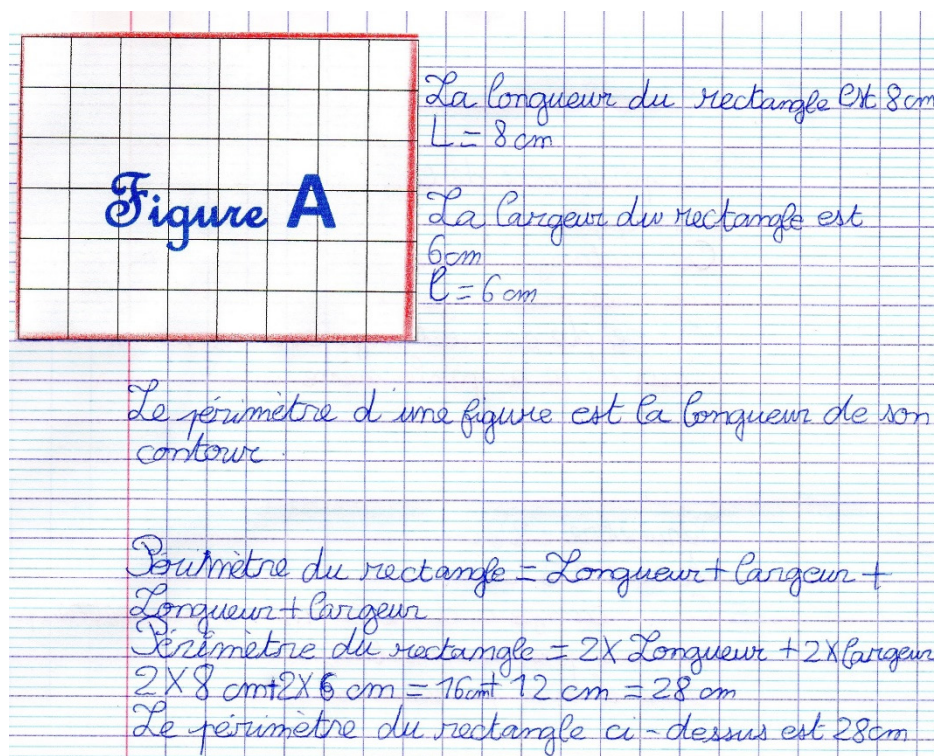 La longueur du rectangle est 8cm
L = 8 cm
Figure A
La largeur du rectangle est
6cm
l = 6 cm
Le périmètre d'une figure est la longueur de son
contour.
Périmètre du rectangle = Longueur + largeur +
Longueur + largeur
Périmètre du rectangle = 2 X Longueur + 2 X largeur
2 X 8 cm + 2 X 6 cm = 16 cm + 12 cm = 28 cm
Le périmètre du rectangle ci-dessus est 28cm